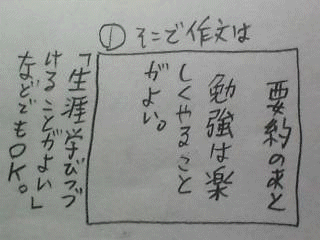 ① そこで作文は
要約のあと
勉強は楽
しくやること
がよい。
「生涯学びつづ
けることがよい」
などでもOK。